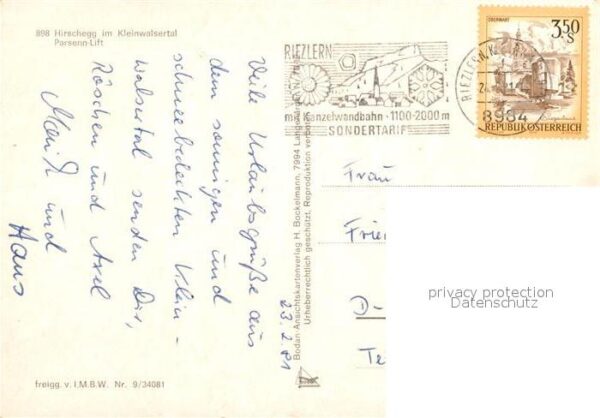 898 Hirschegg im Kleinwalsertal
Parsenn-Lift
Viele Urlaubsgrüße aus
dem sonnigen und
schneebedeckten Klein-
walsertal senden Dir,
Röschen und Axel
und
Hans
23.2.81
freigg. v. I.M.B.W. Nr. 9/34081
Bodan Ansichtskartenverlag H. Bockelmann, 7994 Langenargen
Urheberrechtlich geschützt. Reproduktion verboten
RIEZLERN
mit Kanzelwandbahn · 1100-2000 m
SONDERTARIF
RIEZLERN
8984
OBERWART
3.50
S
REPUBLIK ÖSTERREICH
Frau
D-
privacy protection
Datenschutz